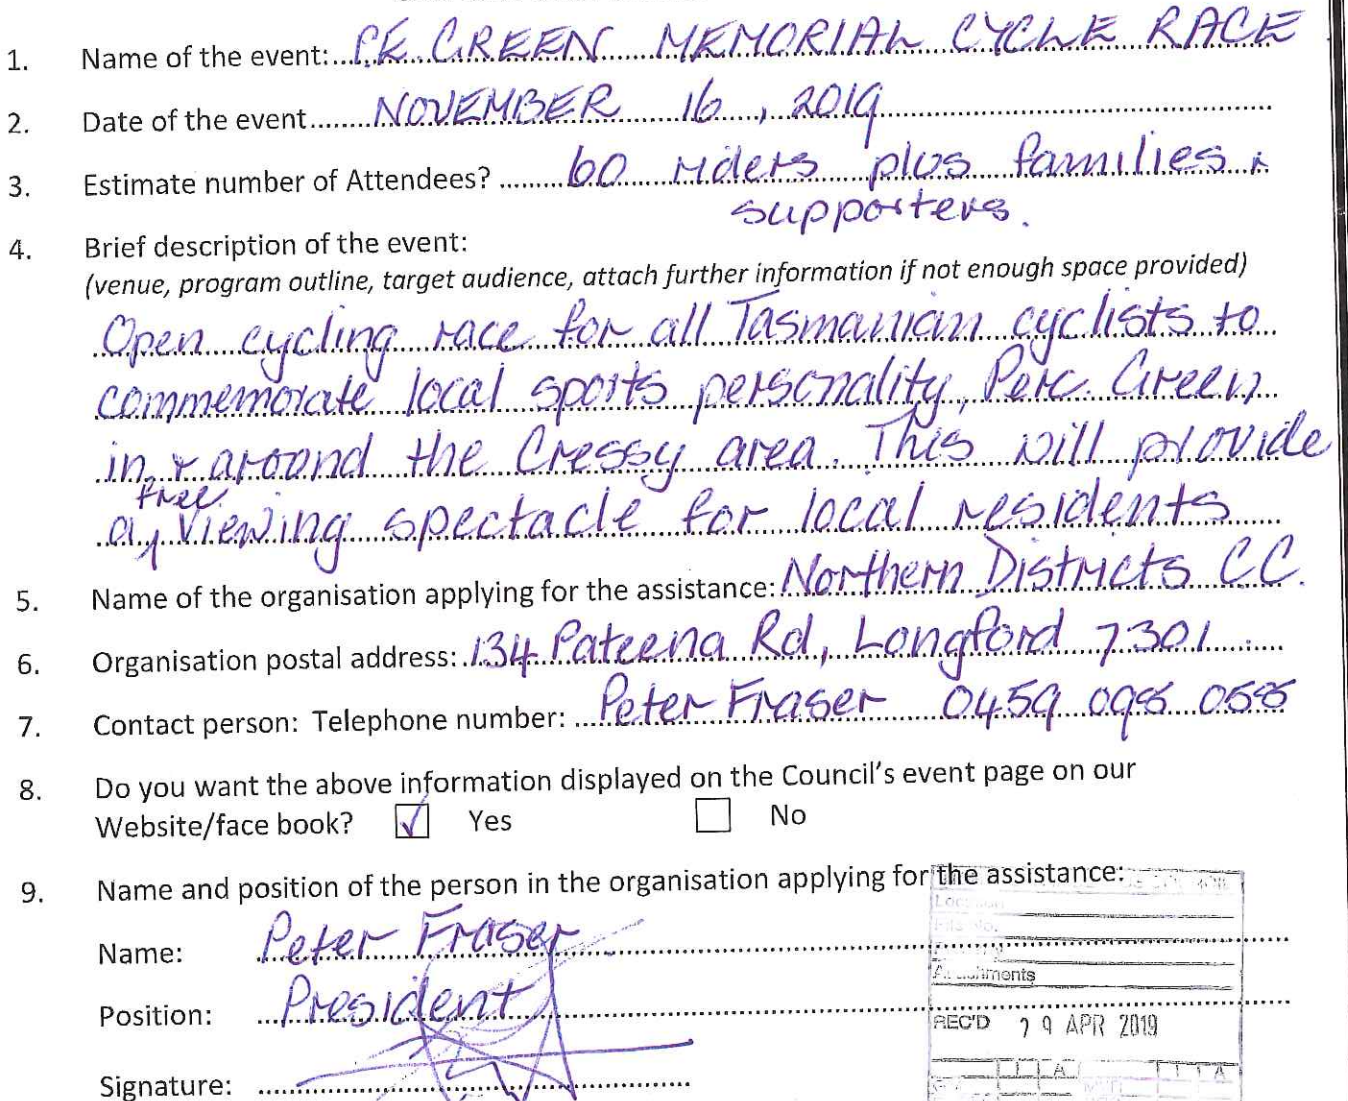 1. Name of the event: P.E. GREEN MEMORIAL CYCLE RACE
2. Date of the event NOVEMBER 16, 2019
3. Estimate number of Attendees? 60 riders plus families &
supporters.
4. Brief description of the event:
(venue, program outline, target audience, attach further information if not enough space provided)
Open cycling race for all Tasmanian cyclists to
commemorate local sports personality, Perc. Green
in & around the Cressy area. This will provide
a free viewing spectacle for local residents
5. Name of the organisation applying for the assistance: Northern Districts CC.
6. Organisation postal address: 134 Pateena Rd, Longford 7301
7. Contact person: Telephone number: Peter Fraser 0459
8. Do you want the above information displayed on the Council's event page on our
Website/face book? ☑ Yes ☐ No
9. Name and position of the person in the organisation applying for the assistance:
Name: Peter Fraser
Position: President
Attachments
REC'D 29 APR 2019
Signature: